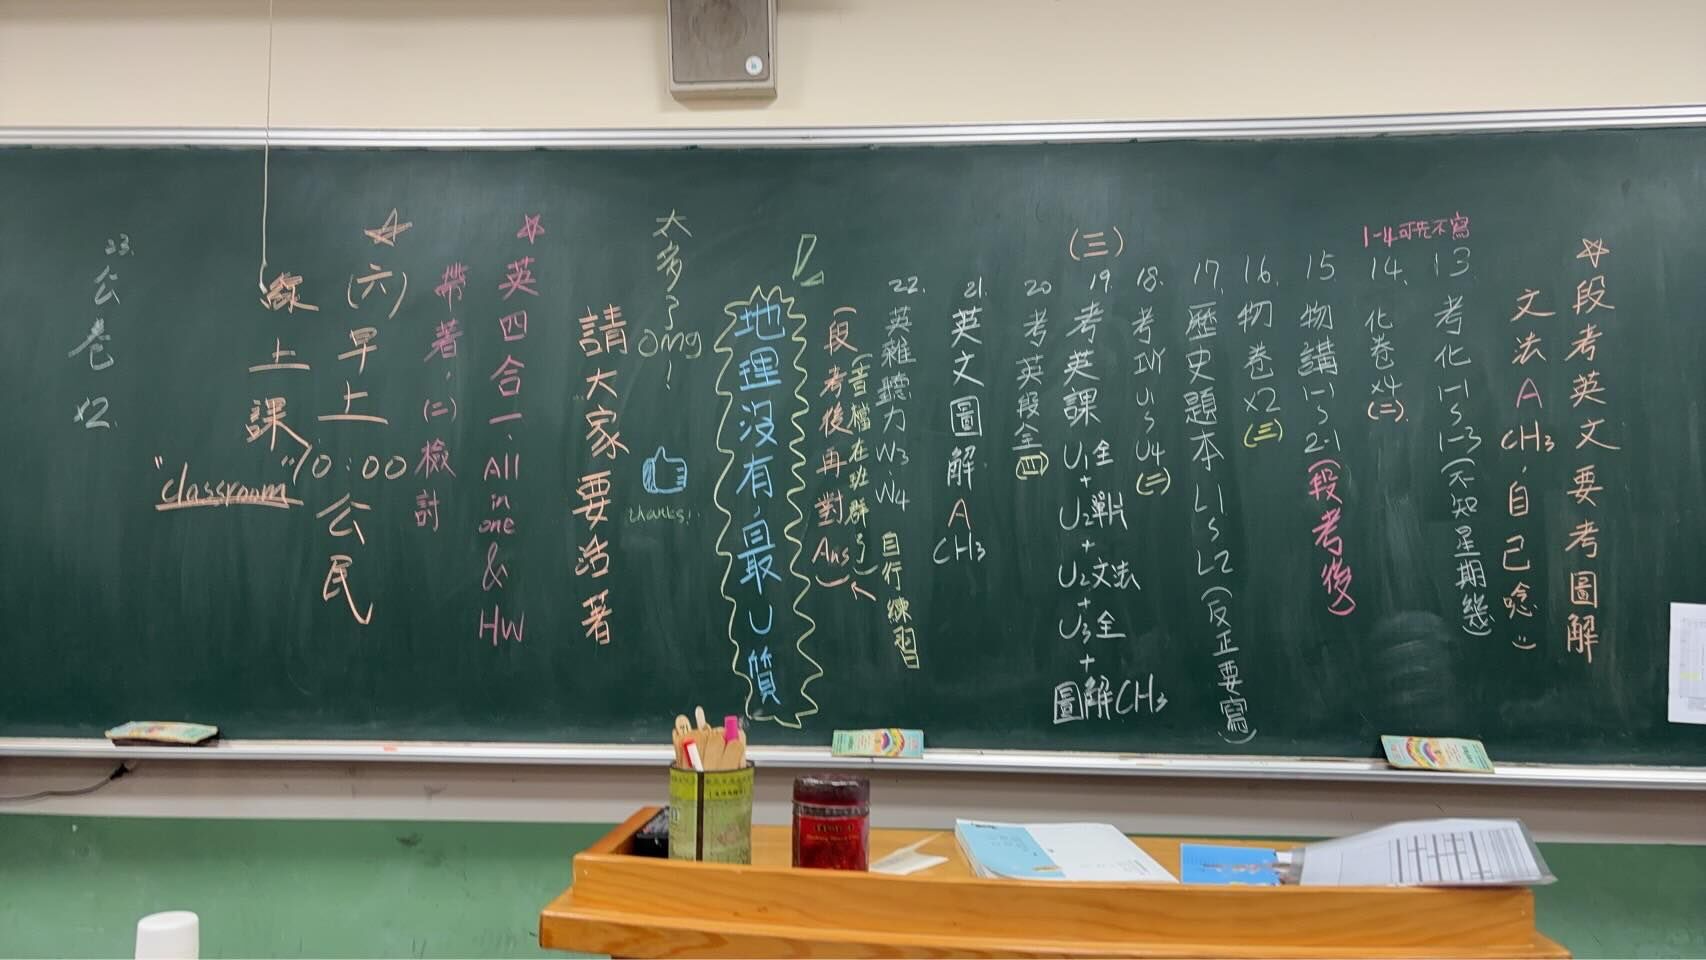 ☆段考英文要考圖解
文法A CH3,自己唸"
13.考化1-1~1-3(不知星期幾)
1-4可先不寫
14.化卷x4(二)
15物講1-1~2-1(段考後)
16.物卷x2(三)
17.歷史題本L1~L2(反正要寫)
18.考 U1~U4(二)
(三)
19.考英課U1全+U2單片+U2文法+U3全+圖解CH3
20考英段全(四)
21.英文圖解A CH3
22.英雜聽力W3、W4自行練習
(音檔在班群了)
(段考後再對Ans)
地理沒有,最U質
太多了omg!
thanks!
請大家要活著
☆英四合一、All in one & HW
帶著,(二)檢討
☆(六)早上10:00公民
線上課,
"classroom"
23.公卷x2.